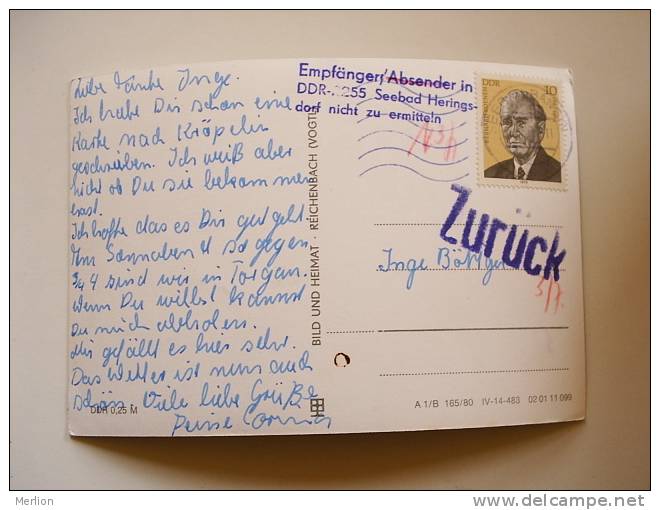 Liebe Tante Inge.
Ich habe Dir schon eine
Karte nach Kröpelin
geschrieben. Ich weiß aber
nicht ob Du sie bekommen
hast.
Ich hoffe das es Dir gut geht.
Am Sonnabend so gegen
3/4 4 sind wir in Torgau.
Wenn Du willst kannst
Du mich abholen.
Mir gefällt es hier sehr.
Das Wetter ist nun auch
schön. Viele liebe Grüße
DDR 0,25 M
BILD UND HEIMAT · REICHENBACH (VOGTL
Empfänger/Absender in
DDR- 255 Seebad Herings-
dorf nicht zu ermitteln
DDR 10
Zurück
Inge Böttger
A 1/B 165/80 IV-14-483 02 01 11 099
Merlion
www.delcampe.net